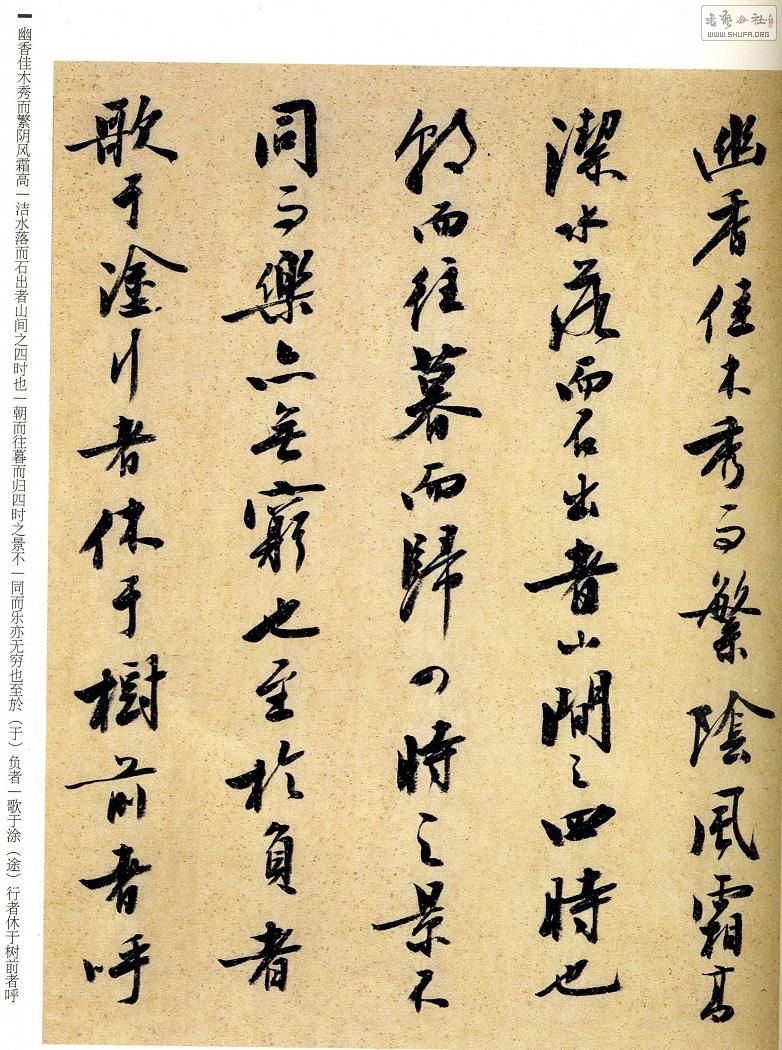 幽香佳木秀而繁陰風霜高
潔水落而石出者山間之四時也
朝而往暮而歸四時之景不
同而樂亦無窮也至於負者
歌于塗行者休于樹前者呼
幽香佳木秀而繁阴风霜高一洁水落而石出者山间之四时也一朝而往暮而归四时之景不一同而乐亦无穷也至於（于）负者一歌于涂（途）行者休于树前者呼
书艺公社
WWW.SHUFA.ORG